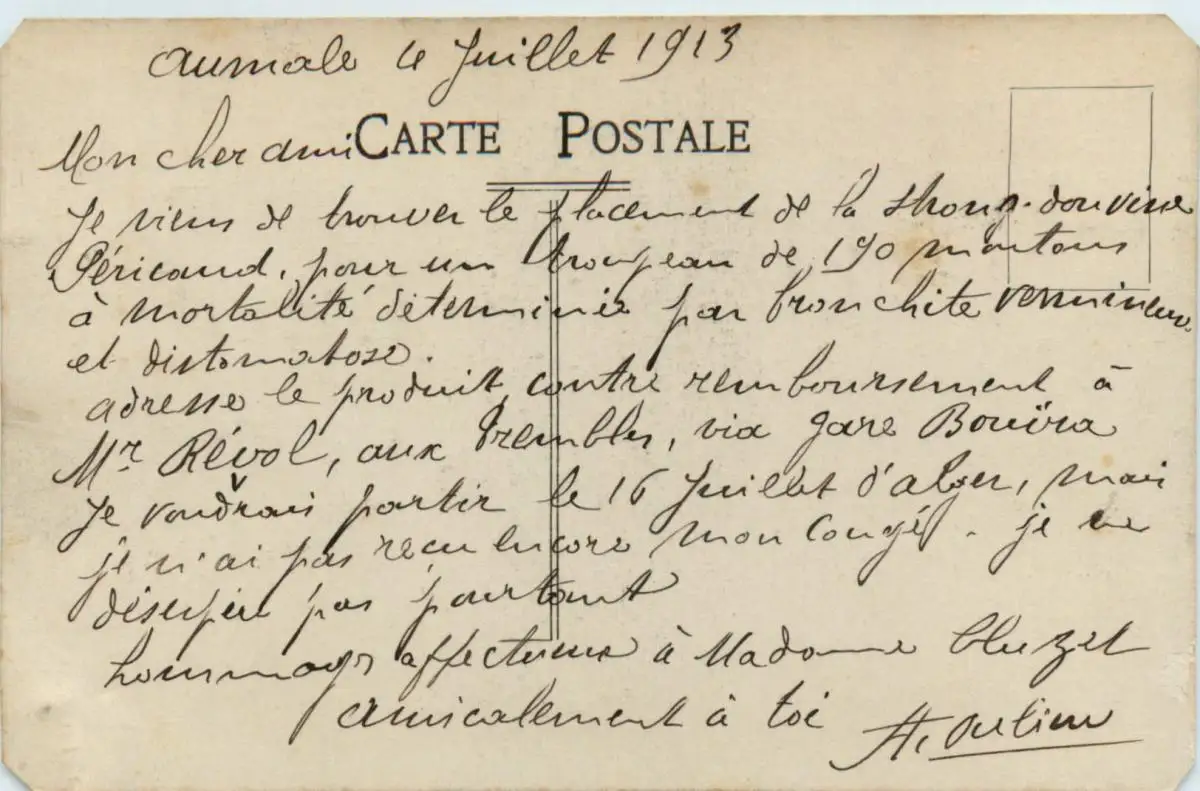 Aumale 4 Juillet 1913
CARTE POSTALE
Mon cher ami
Je viens de trouver le placement de la
Péricaud, pour un troupeau de 190 moutons
à mortalité déterminée par bronchite vermineuse
et distomatose.
adresse le produit, contre remboursement à
Mr Révol, aux Trembles, via gare Bouïra
Je voudrais partir le 16 Juillet d'alger, mais
je n'ai pas reçu encore mon congé. je ne
désespère pas pourtant
hommages affectueux à Madame
amicalement à toi